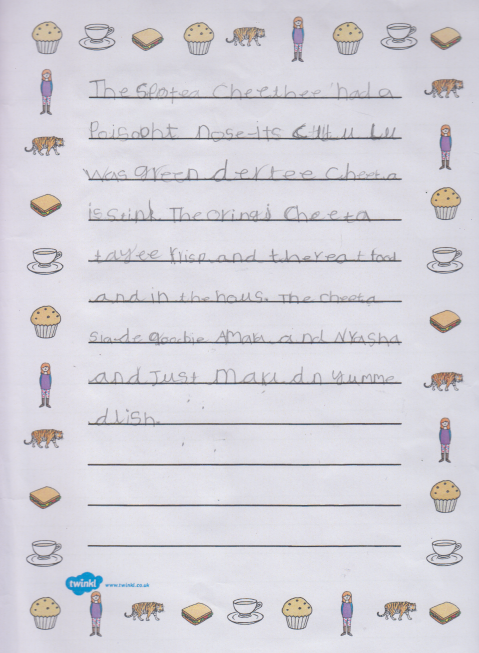 The Spotea Cheethee had a
Poisonht nose-its
was green dertee Cheeta
is Stink. The oringi Cheeta
tayee krisp and thereat food
and in the hous. The cheeta
siade goodbie Amaru and Nyasha
and Just Maru dn yumme
dlish.
twinkl www.twinkl.co.uk